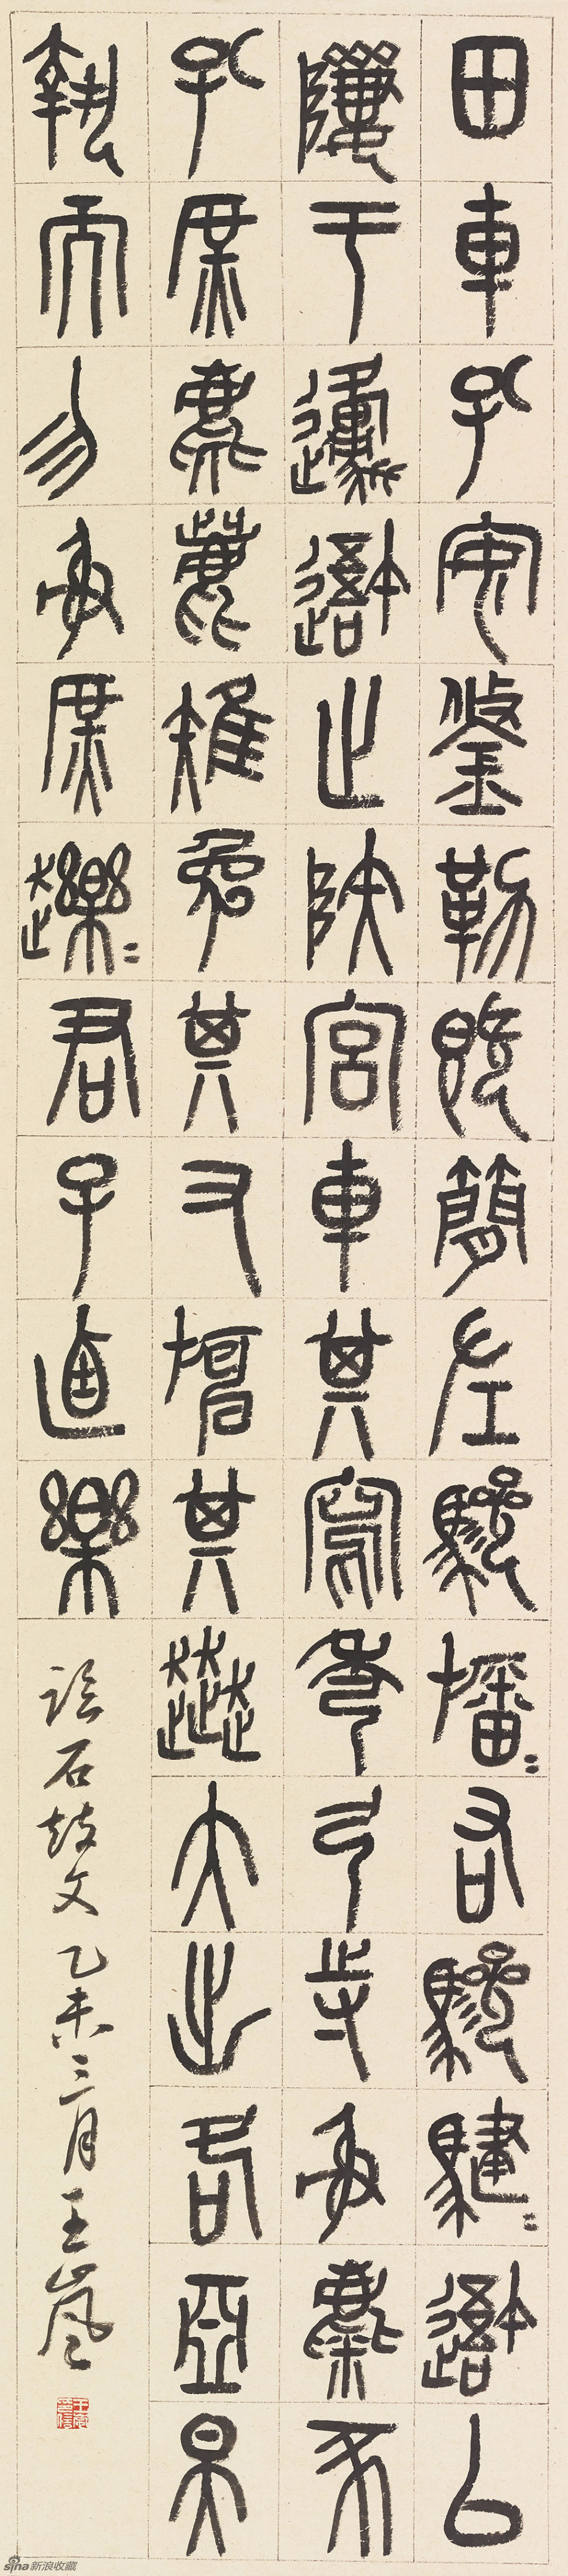 田車孔安鋚勒既簡左驂旛=右驂騝=以
隮于邍止陝宮車其寫秀弓寺射麋豕
孔庶麀鹿雉兔其又其大出各亞昊
執而勿射庶=君子逌樂
臨石鼓文 乙未三月 王嵐
sina新浪收藏